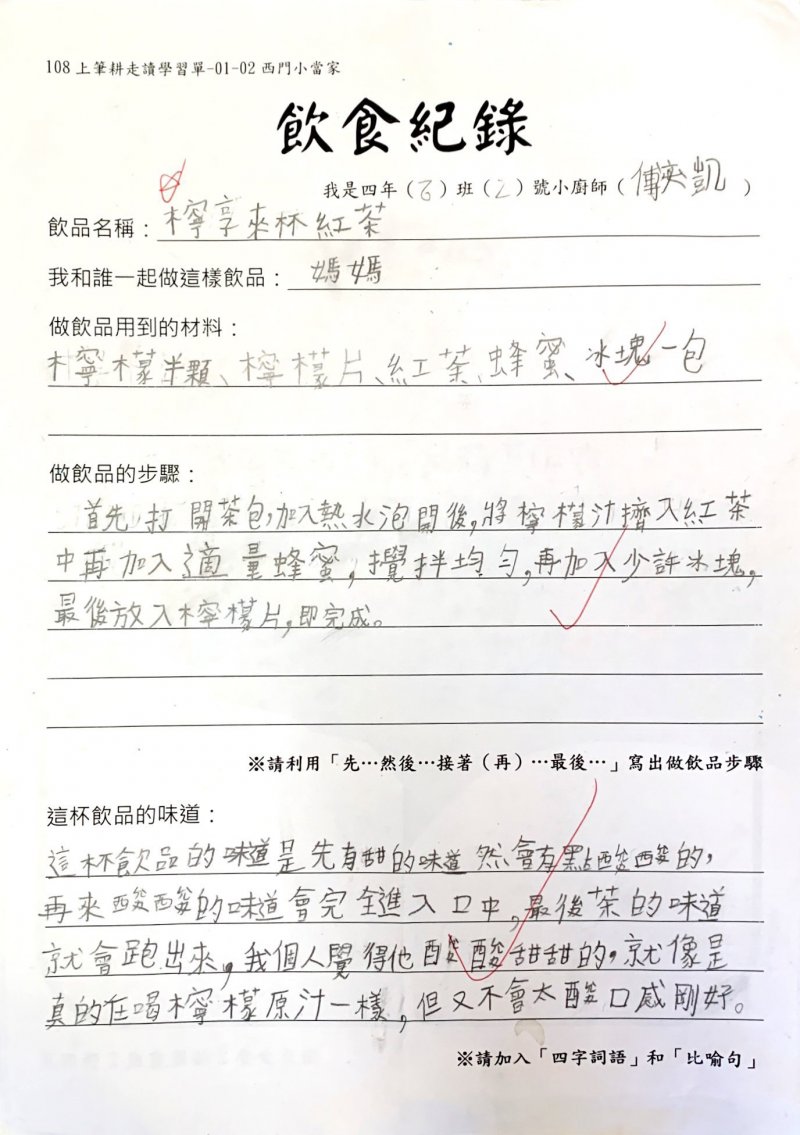 108 上筆耕走讀學習單-01-02 西門小當家
飲食紀錄
我是四年（6）班（2）號小廚師（傅奕凱）
飲品名稱：檸享來杯紅茶
我和誰一起做這樣飲品：媽媽
做飲品用到的材料：
檸檬半顆、檸檬片、紅茶、蜂蜜、冰塊一包
做飲品的步驟：
首先打開茶包,加入熱水泡開後,將檸檬汁擠入紅茶
中再加入適量蜂蜜,攪拌均勻,再加入少許冰塊,
最後放入檸檬片,即完成。
※請利用「先…然後…接著（再）…最後…」寫出做飲品步驟
這杯飲品的味道：
這杯飲品的味道是先有甜的味道然會有點酸酸的,
再來酸酸的味道會完全進入口中,最後茶的味道
就會跑出來,我個人覺得他酸酸甜甜的,就像是
真的在喝檸檬原汁一樣,但又不會太酸口感剛好。
※請加入「四字詞語」和「比喻句」